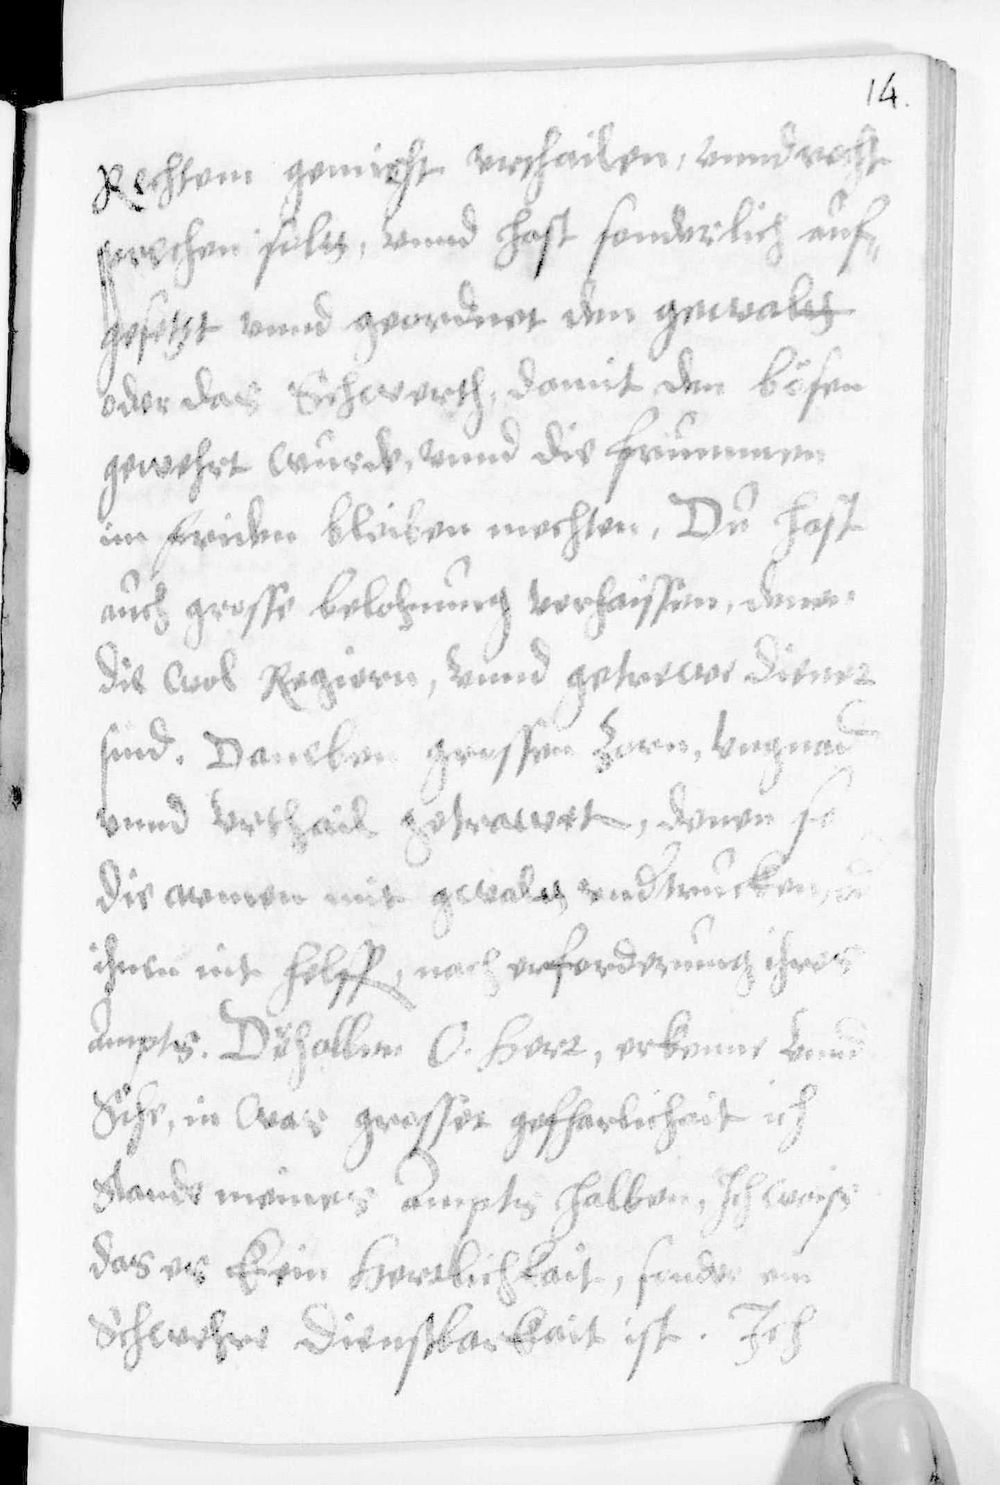 14.
Rechtem gewicht urthailen, vnnd recht
sprechen solt, vnnd hast sonderlich auf„
gesetzt vnnd geordnet den gewalt
oder das Schwerth, damit den bösen
gewehrt wurde, vnnd die frummen
im friden bleiben mechten, Du hast
auch grosse belohnung verhaissen, denen
die wol Regiern, vnnd getrewe diener
sind. Daneben grossen Zorn, vngnad
vnnd vrthail getrawet, denen so
die armen mit gwalt vndtrucken,
ihnen nit helff, nach erforderung ihres
ampts. Dẽhalben O. Herr, erkenne vnnd
Sihe, in was grosser gefharlichait ich
Stande meines ampts halben, Ich waiss
das es kein Herrlichkait, sonder ein
Schwehre dienstbarkait ist. Ich